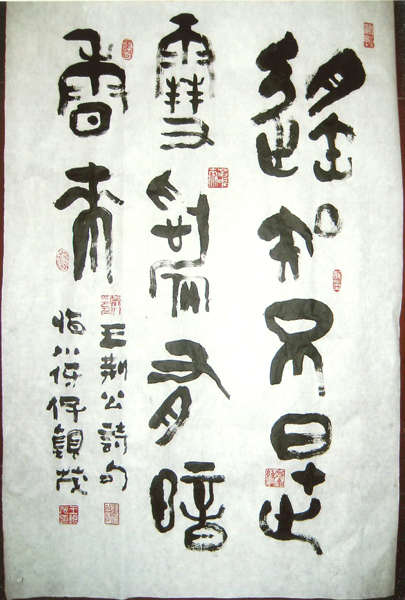 遙知不是
雪為有暗
香來
王荊公詩句